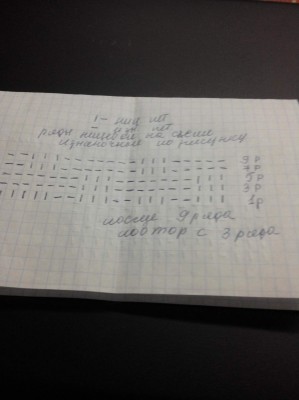 I - лиц пет
— - изн пет
ряды лицевые на схеме
изнаночные по рисунку
9 р
7 р
5 р
3 р
1 р
после 9 ряда
повтор с 3 ряда